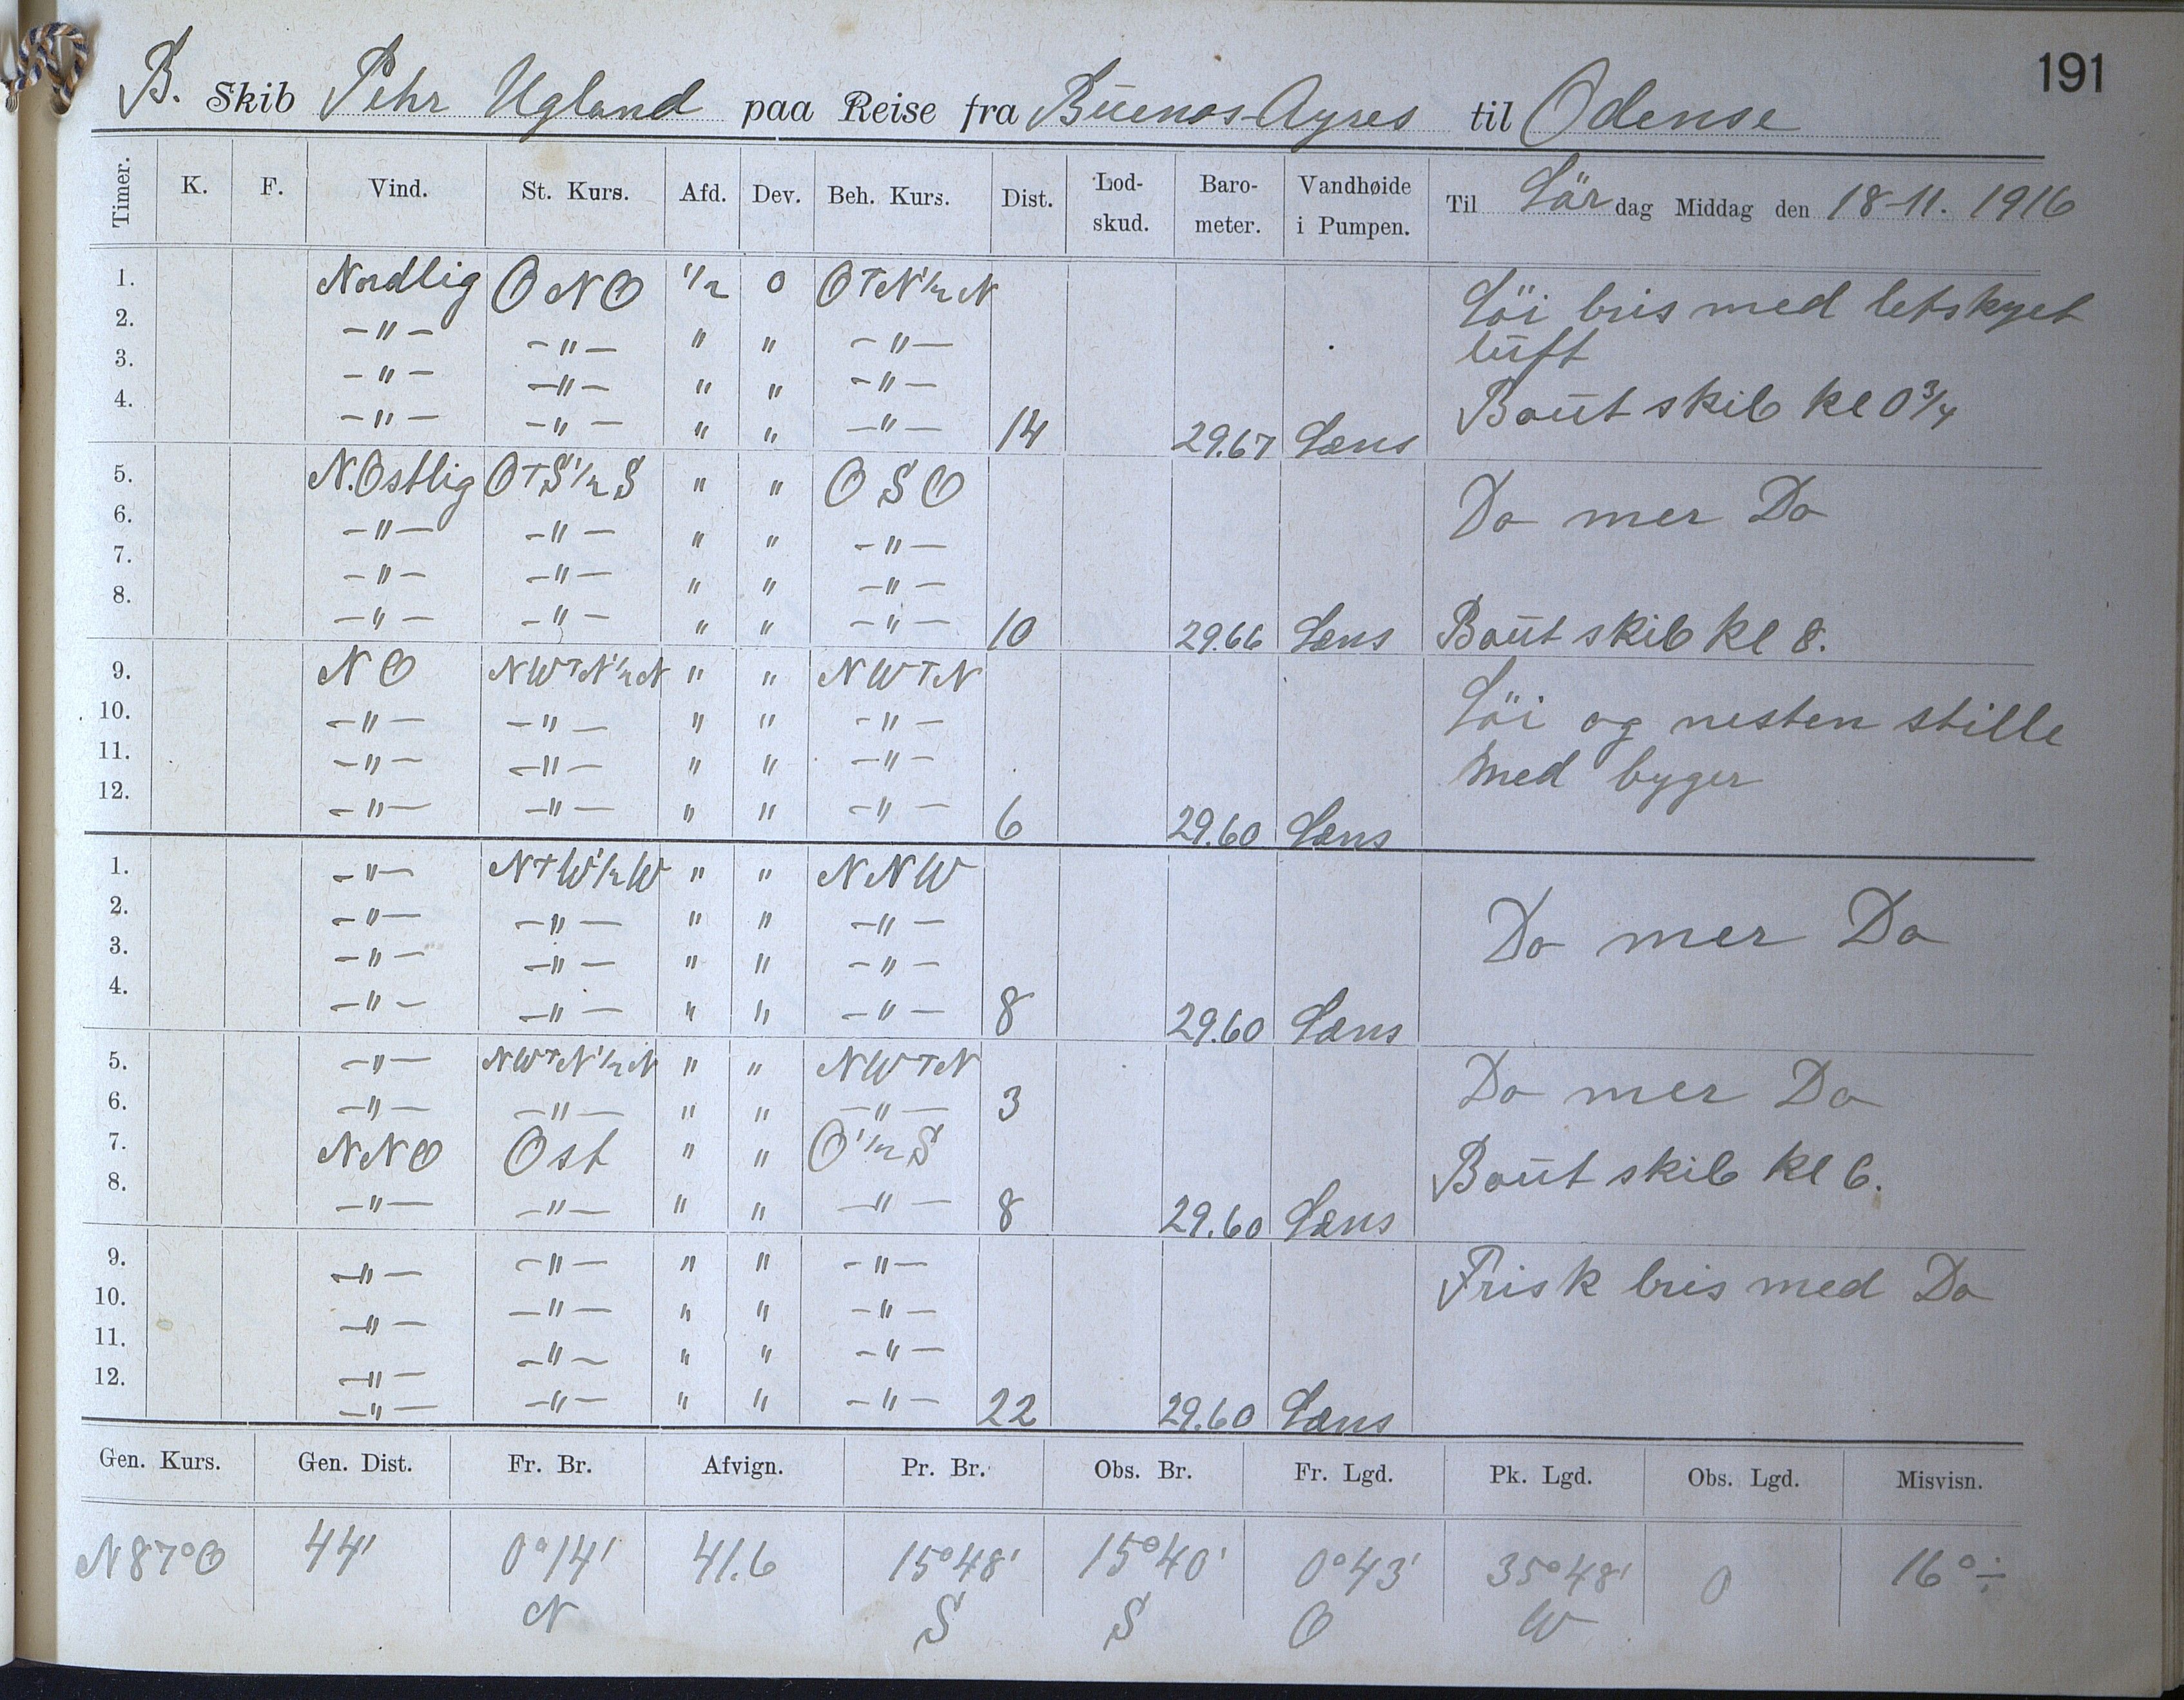 191
B. Skib Pehr Ugland paa Reise fra Buenos-Ayres til Odense
Timer. K. F. Vind. St. Kurs. Afd. Dev. Beh. Kurs. Dist. Lod-skud. Baro-meter. Vandhøide i Pumpen. Til Lör dag Middag den 18-11. 1916
1. Nordlig ONO 1/2 0 OTN 1/2 N Löi bris med letskyet
2. -"- -"- " " -"- luft
3. -"- -"- " " -"-
4. -"- -"- " " -"- 14 29.67 Læns Bout skib kl 0 3/4
5. N.Ostlig OTS 1/2 S " " OSO Do mer Do
6. -"- -"- " " -"-
7. -"- -"- " " -"-
8. -"- -"- " " -"- 10 29.66 Læns Bout skib kl 8.
9. NO NWTN 1/2 N " " NWTN Löi og nesten stille
10. -"- -"- " " -"-
11. -"- -"- " " -"- med byger
12. -"- -"- " " -"- 6 29.60 Læns
1. -"- NTW 1/2 W " " NNW
2. -"- -"- " " -"- Do mer Do
3. -"- -"- " " -"-
4. -"- -"- " " -"- 8 29.60 Læns
5. -"- NWTN 1/2 N " " NWTN Do mer Do
6. -"- -"- " " -"- 3
7. NNO Ost " " O 1/2 S Bout skib kl 6.
8. -"- -"- " " -"- 8 29.60 Læns
9. -"- -"- " " -"- Frisk bris med Do
10. -"- -"- " " -"-
11. -"- -"- " " -"-
12. -"- -"- " " -"- 22 29.60 Læns
Gen. Kurs. Gen. Dist. Fr. Br. Afvign. Pr. Br. Obs. Br. Fr. Lgd. Pk. Lgd. Obs. Lgd. Misvisn.
N 87° O 44' 0°14' 41.6 15°48' 15°40' 0°43' 35°48' 0 16° ÷
N S S O W